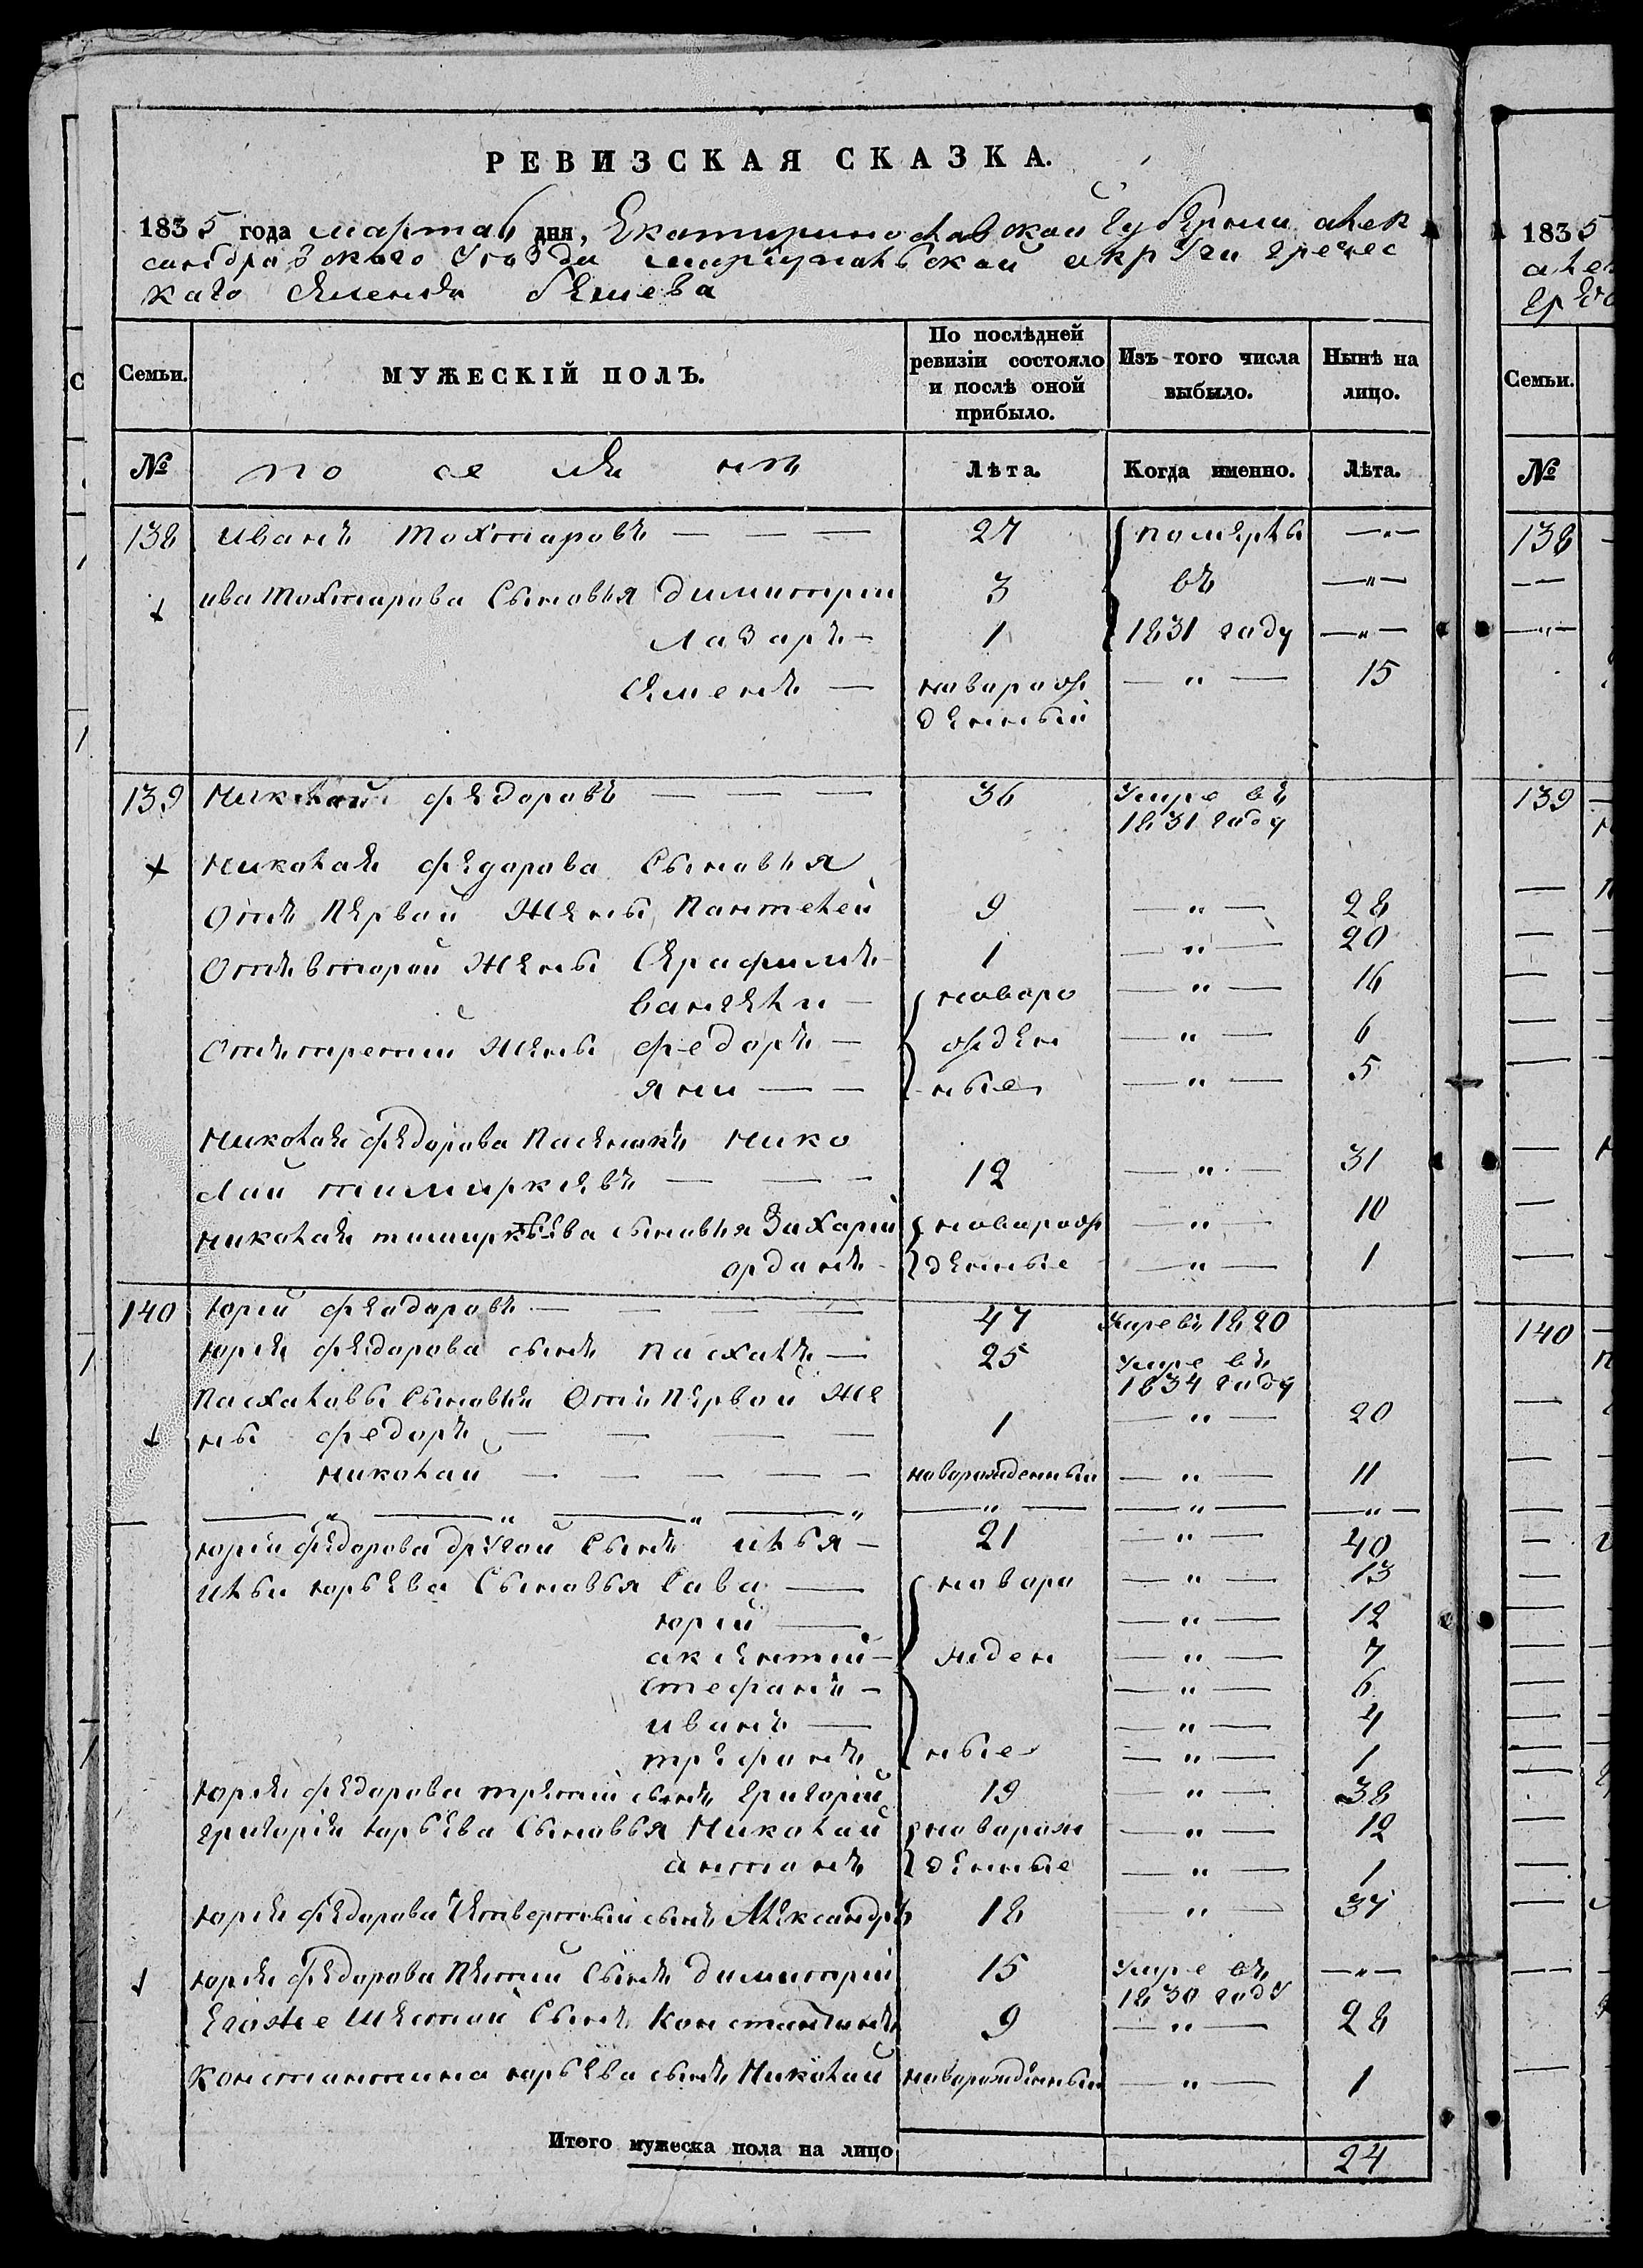 РЕВИЗСКАЯ СКАЗКА.
1835 года марта дня, Екатеринославской губернии алек
сандровского уезда мариупольской округи гречес
каго селения бешева
Семьи. МУЖЕСКІЙ ПОЛЪ. По послѣдней ревизіи состояло и послѣ оной прибыло. Изъ того числа выбыло. Нынѣ на лицо.
№ поселянъ Лѣта. Когда именно. Лѣта.
138 иванъ тохтаровъ — — — 27 померлы —„—
ива тохтарова сыновья димитрии 3 въ —„—
лазаръ — 1 1831 году —„—
семенъ — наворож — „ — 15
денный
139 николай федоровъ — — — 36 умре въ
1831 году
николая федорова сыновья
отъ первой жены пантелей 9 — „ — 28
отъ второй жены серафимъ 1 — „ — 20
вангели — новоро — „ — 16
отъ третий жены федоръ — жден — „ — 6
яни — — ные — „ — 5
николая федорова пасенокъ нико
лай тимиркевъ — — — 12 — „ — 31
николая тимиркева сыновья захарий наворож — „ — 10
орданъ — денные — „ — 1
140 юрий феодоровъ — — — — 47 умре въ 1820
юрия федорова сынъ пасхалъ — 25 умре въ
1834 году
пасхаловы сыновья отъ первой же
ны федоръ — — — — 1 — „ — 20
николай — — — — — новорожденный — „ — 11
— „ — „ — „ — „ — „ — — „ — —„—
юрия федорова другой сынъ илья — 21 — „ — 40
ильи юрьева сыновья сава — новоро — „ — 13
юрий — — „ — 12
аксентий — жден — „ — 7
стефанъ — — „ — 6
иванъ — — „ — 4
трефанъ ные — „ — 1
юрия федорова третий сынъ григорий 19 — „ — 38
григория юрьева сыновья николай наворож — „ — 12
антонъ денные — „ — 1
юрия федорова четвертный сынъ александръ 18 — „ — 37
юрия федорова пятий сынъ димитрий 15 умре въ —„—
1830 году
егоже шестий сынъ константинъ 9 — „ — 28
константина юрьева сынъ николай наворожденный — „ — 1
Итого мужеска пола на лицо 24
1835
Семьи.
№
138
139
140